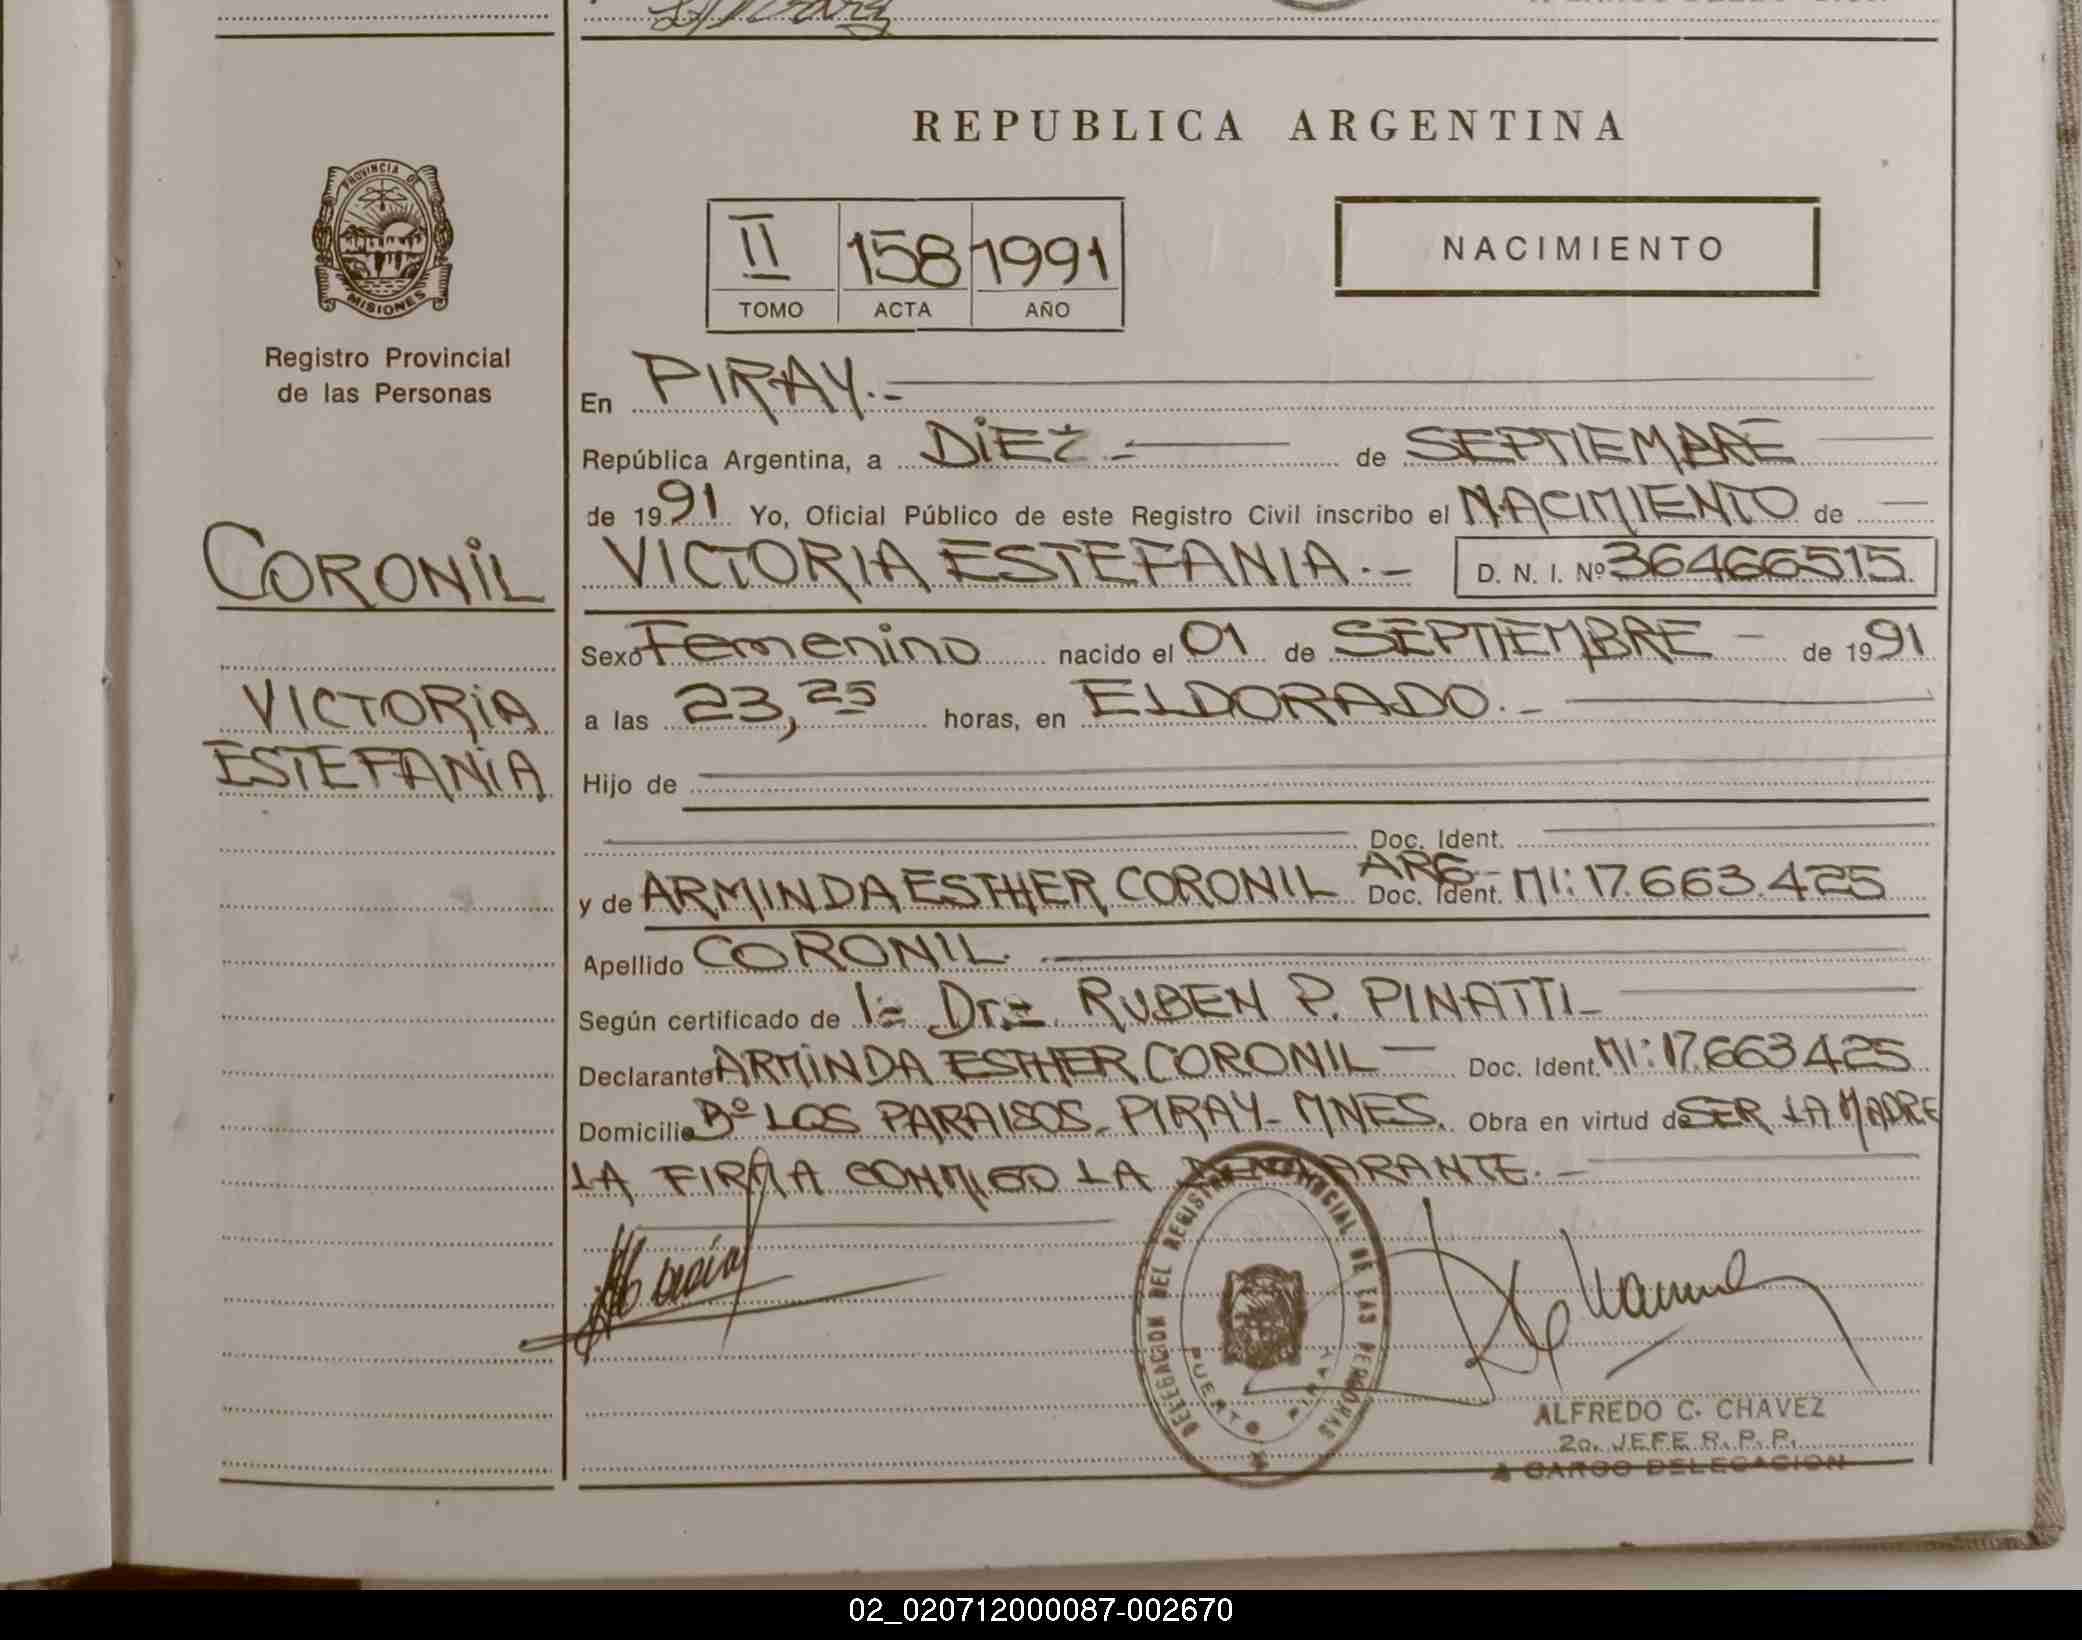 REPUBLICA ARGENTINA
PROVINCIA DE
MISIONES
Registro Provincial
de las Personas
II 158 1991
TOMO ACTA AÑO
NACIMIENTO
En PIRAY.-
República Argentina, a DIEZ - de SEPTIEMBRE
de 1991 Yo, Oficial Público de este Registro Civil inscribo el NACIMIENTO de
CORONIL
VICTORIA ESTEFANIA.- D. N. I. Nº 36466515
Sexo Femenino nacido el 01 de SEPTIEMBRE - de 1991
VICTORIA
ESTEFANIA
a las 23,25 horas, en ELDORADO.-
Hijo de
Doc. Ident.
y de ARMINDA ESTHER CORONIL ARG- Doc. Ident. MI: 17.663.425
Apellido CORONIL.
Según certificado de l= Dr= RUBEN P. PINATTI-
Declarante ARMINDA ESTHER CORONIL - Doc. Ident. MI: 17.663425
Domicilio Bº LOS PARAISOS- PIRAY- MNES. Obra en virtud de SER LA MADRE
LA FIRMA CONMIGO LA DECLARANTE.-
DELEGACION DEL REGISTRO PROVINCIAL DE LAS PERSONAS
PUERTO PIRAY
ALFREDO C. CHAVEZ
2o. JEFE R. P. P.
A CARGO DELEGACION
02_020712000087-002670